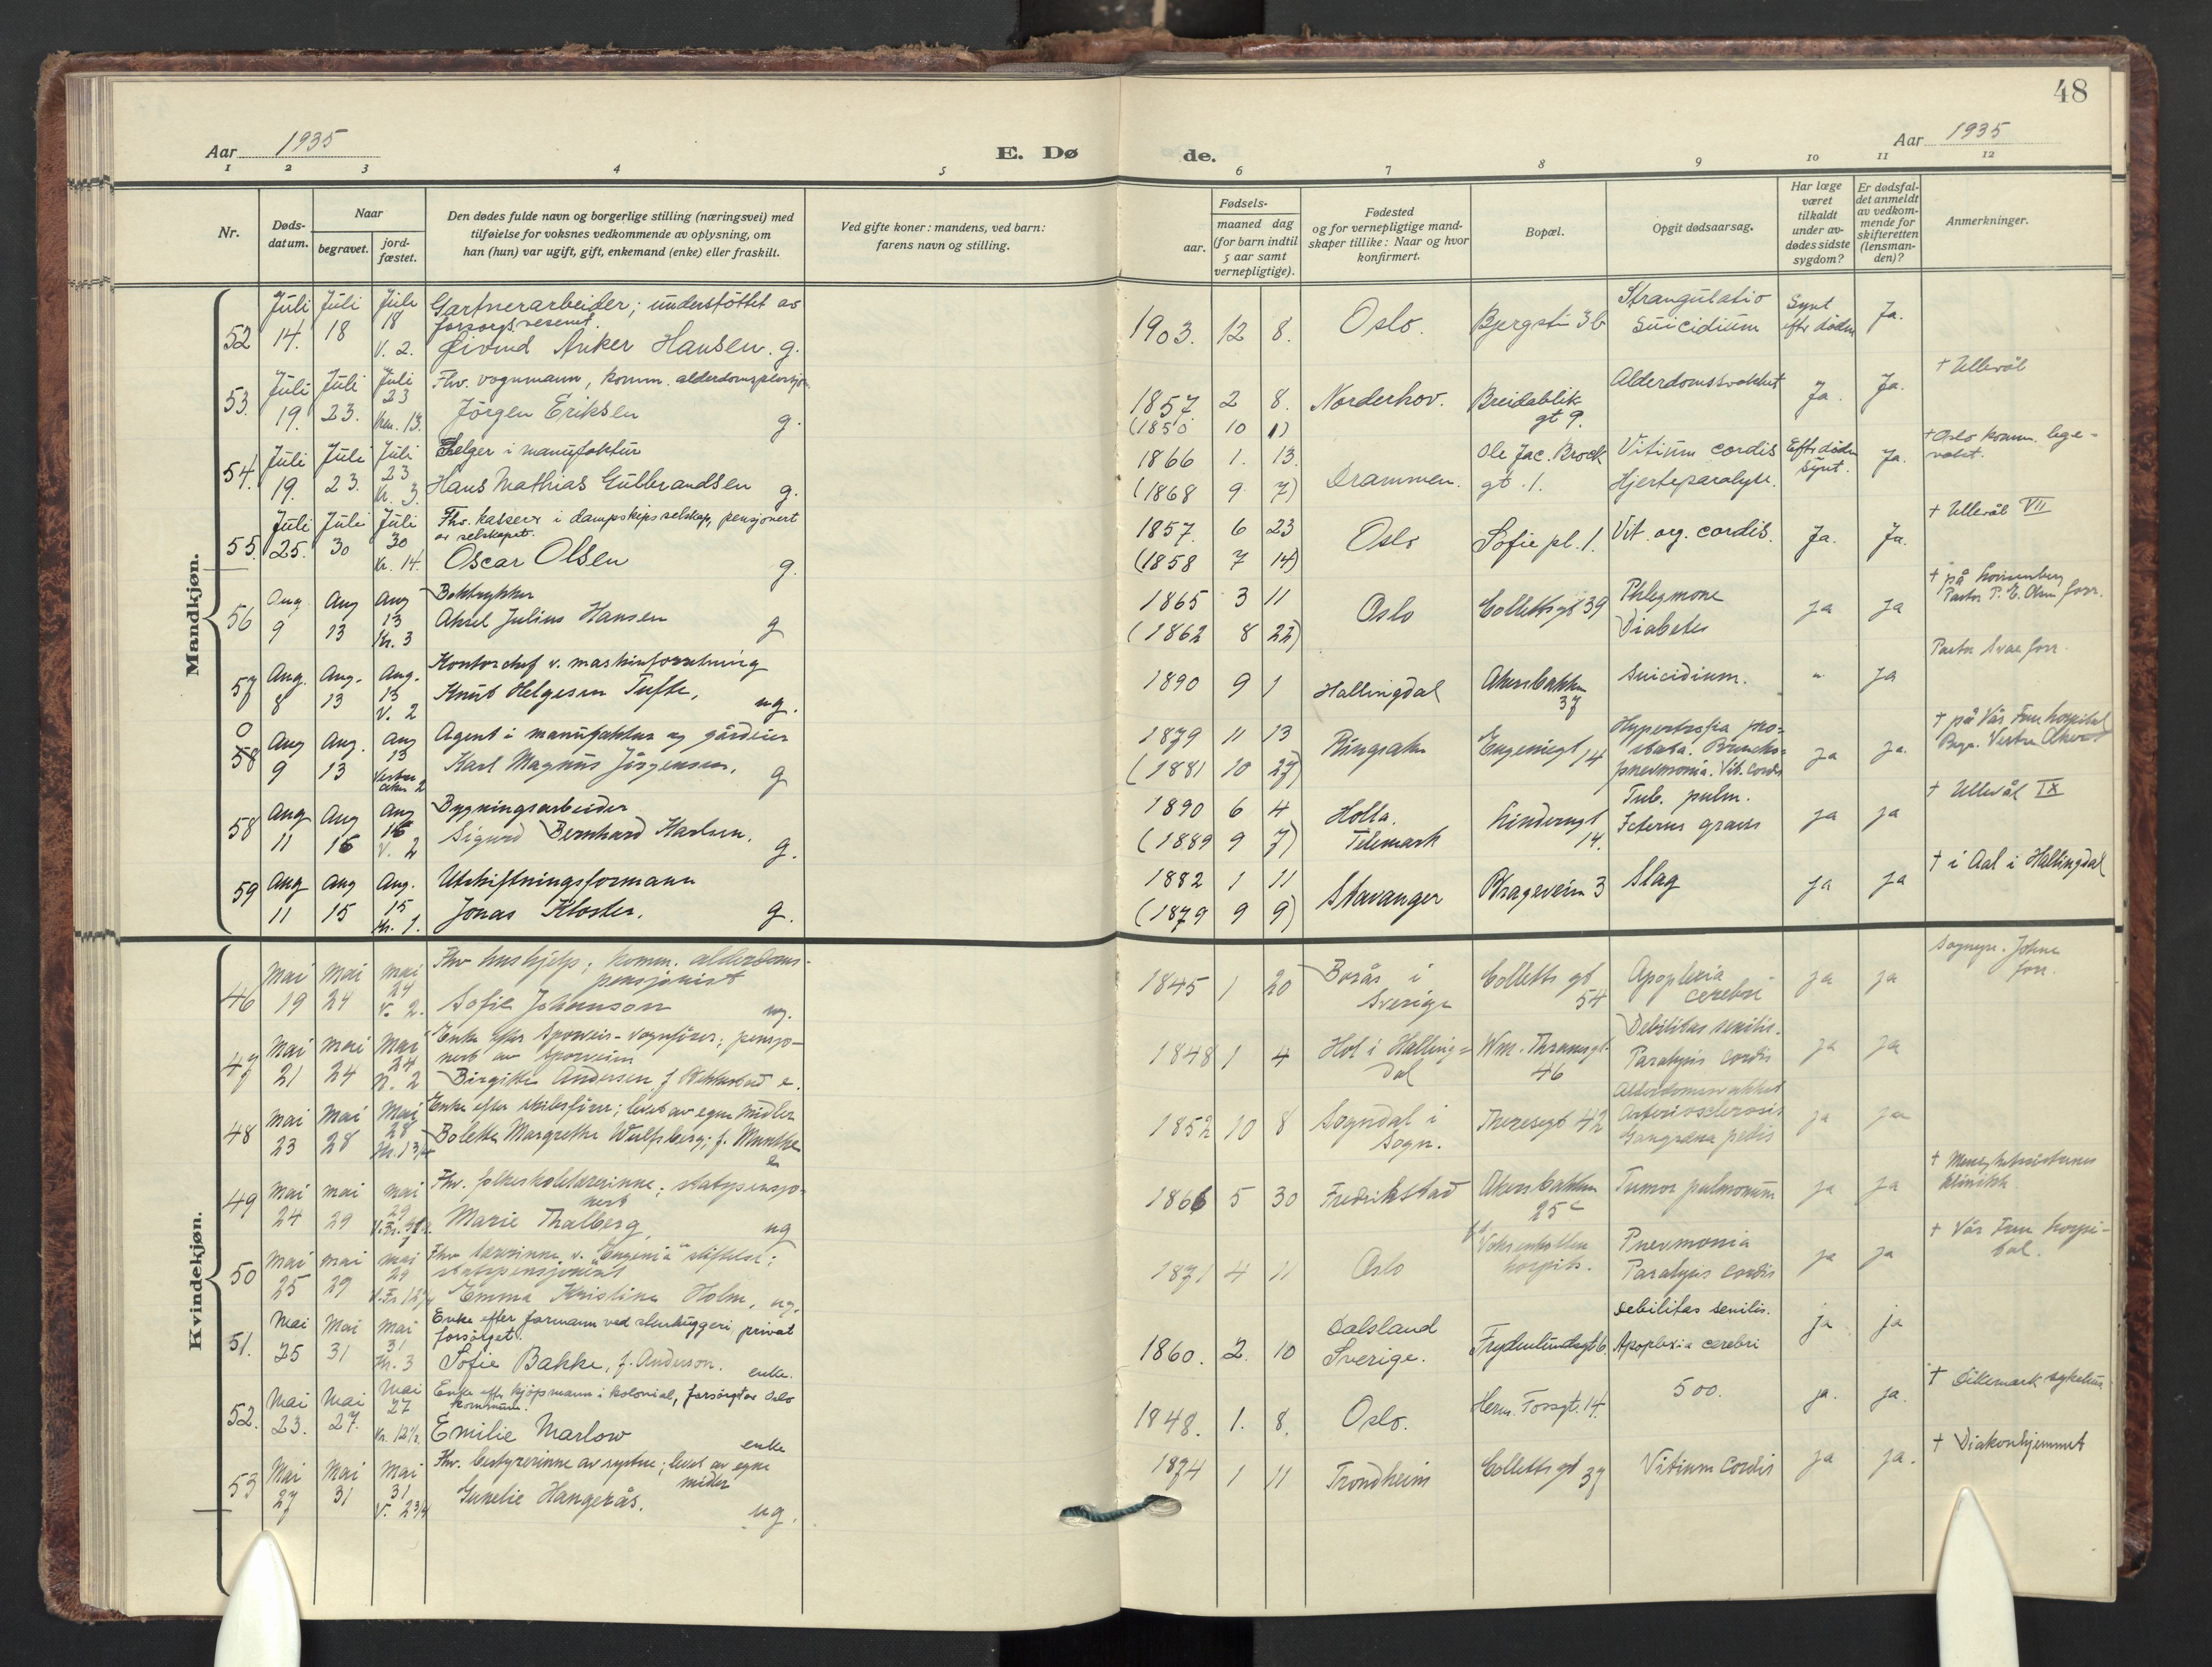 48
Aar 1935
E. Dø
de.
Aar 1935
1 2 3 4 5 6 7 8 9 10 11 12
Nr.
Døds-
datum.
Naar
begravet.
jord-
fæstet.
Den dødes fulde navn og borgerlige stilling (næringsvei) med
tilføielse for voksnes vedkommende av oplysning, om
han (hun) var ugift, gift, enkemand (enke) eller fraskilt.
Ved gifte koner: mandens, ved barn:
farens navn og stilling.
Fødsels-
aar.
maaned dag
(for barn indtil
5 aar samt
vernepligtige).
Fødested
og for vernepligtige mand-
skaper tillike: Naar og hvor
konfirmert.
Bopæl.
Opgit dødsaarsag.
Har læge
været
tilkaldt
under av-
dødes sidste
sygdom?
Er dødsfal-
det anmeldt
av vedkom-
mende for
skifteretten
(lensman-
den)?
Anmerkninger.
Mandkjøn.
52 Juli 14. Juli 18 Juli 18 V. 2.
Gartnerarbeider; understöttet av
forsorgsvesenet.
Øivind Anker Hansen. g.
1903. 12 8. Oslo. Bjergsti 3b
Strangulatio
Suicidium
Synt
efter døden
Ja.
53. Juli 19. Juli 23. Juli 23 13.
Fhv. vognmann, komm. alderdomspensjon.
Jörgen Eriksen g.
1857 2 8.
(1850 10 1)
Norderhov. Breidablik
gt 9.
Alderdomssvakhet Ja. Ja. † Ullevål
54. Juli 19. Juli 23. Juli 23 Kr. 3.
Selger i manufaktur
Hans Mathias Gulbrandsen g.
1866 1. 13.
(1868 9 7)
Drammen. Ole Jac. Broch
gt. 1.
Vitium cordis
Hjerteparalyse.
Efter døden
synt. Ja.
† Oslo komm. lege-
vakt.
55. Juli 25. Juli 30 Juli 30 Kr. 14.
Fhv. kasserer i dampskipsselskap, pensjonert
av selskapet.
Oscar Olsen g.
1857. 6 23
(1858 7 14)
Oslo Sofie pl. 1. Vit. org. cordis. Ja. Ja. † Ullevål VII
56 Aug. 9 Aug 13 Aug 13 Kr. 3
Boktrykker
Aksel Julius Hansen g
1865 3 11
(1862 8 22)
Oslo Collettsgt 39
Phlegmone
Diabetes
ja ja
† på
Pastor P. E. Olsen forr.
57 Aug. 8 Aug. 13 Aug. 13 V. 2
Kontorchef v. maskinforretning
Knut Helgesen Tufte, ug.
1890 9 1 Hallingdal Akersbakken
37
Suicidium. " ja
Pastor Svae forr.
0
58 Aug 9 Aug. 13 Aug 13 Vestre Aker 2
Agent i manufaktur og gårdeier
Karl Magnus Jörgensen, g
1879 11 13
(1881 10 27)
Ringsaker Eugeniegt 14
Hypertrofia pro-
stata. Broncho-
pneumonia. Vit. cordis
ja ja
† på Vår Frue hospital
Begr. Vestre Aker
58 Aug 11 Aug 16 Aug 16 V. 2
Bygningsarbeider
Sigurd Bernhard Karlsen. g.
1890 6 4
(1889 9 7)
Holla.
Telemark
Linderngt
14.
Tub. pulm.
Icterus gravis
ja ja † Ullevål IX
59 Aug 11 Aug 15 Aug. 15 Kr. 1.
Utskiftningsformann
Jonas Kloster. g.
1882 1 11
(1879 9 9)
Stavanger Brageveien 3 Slag ja ja † i Aal i Hallingdal
Kvindekjøn.
46 Mai 19 Mai 24 Mai 24 V. 2.
Fhv hushjelp; komm. alderdoms-
pensjonist
Sofie Johansson ug.
1845 1 20 Borås i
Sverige
Colletts gt
54
Apoplexia
cerebri
ja ja
Sogneps. Johne
forr.
47 Mai 21 Mai 24 Mai 24 V. 2
Enke efter Sporveis-vognfører; pensjo-
nert av Sporveien
Birgitte Andersen, f. e.
1848 1 4 Hol i Halling-
dal
Wm. Thranesgt.
46
Debilitas senilis.
Paralysis cordis
ja ja
48 Mai 23 Mai 28 Mai 28 Kr. 13/4
Enke efter skibsfører; levet av egne midler
Bolette Margrethe Wulfsberg; f. Munthe
e
1852 10 8 Sogndal i
Sogn.
Theresegt 42
Alderdomssvakhet
Arteriosclerosis
Gangræna pedis
ja ja
49 Mai 24 Mai 29 Mai 29
Fhv. folkeskolelærerinne; statspensjo-
nert
Marie Thalberg, ug
1866 5 30 Fredrikstad Akersbakken
25 c
Tumor pulmonum
ja ja
† Menighetssøstrenes
klinikk
50 Mai 25 Mai 29 Mai 29
Fhv lærerinne v. "Eugenia" stiftelse;
statspensjonist
Emma Kristine Holm, ug.
1871 4 11 Oslo Voksenkollen
hospits.
Pneumonia
Paralysis cordis
ja ja
† Vår Frue hospi-
tal.
51. Mai 25 Mai 31 Mai 31 Kr. 3
Enke efter formann ved skurhyggeri privat
forsörget.
Sofie Bakke, f. Anderson. enke.
1860. 2. 10 Dalsland
Sverige.
Frydenlundsgt 6.
Debilitas senilis.
Apoplexia cerebri
ja ja
52. Mai 23. Mai 27. Mai 27 Kr. 12½
Enke efter kjöpmann i kolonial, forsörget av Oslo
kommune.
Emilie Marlow enke
1848. 1. 8. Oslo. Herm. Fossgt. 14. 500. ja. ja. † Dikemark sykehus
53 Mai 27 Mai 31 Mai 31 V. 23/4
Fhv. bestyrerinne av systue; levet av egne
midler
Gunelie Hangerås. ug.
1874 1 11 Trondheim Colletts gt 37 Vitium Cordis ja ja. † Diakonhjemmet